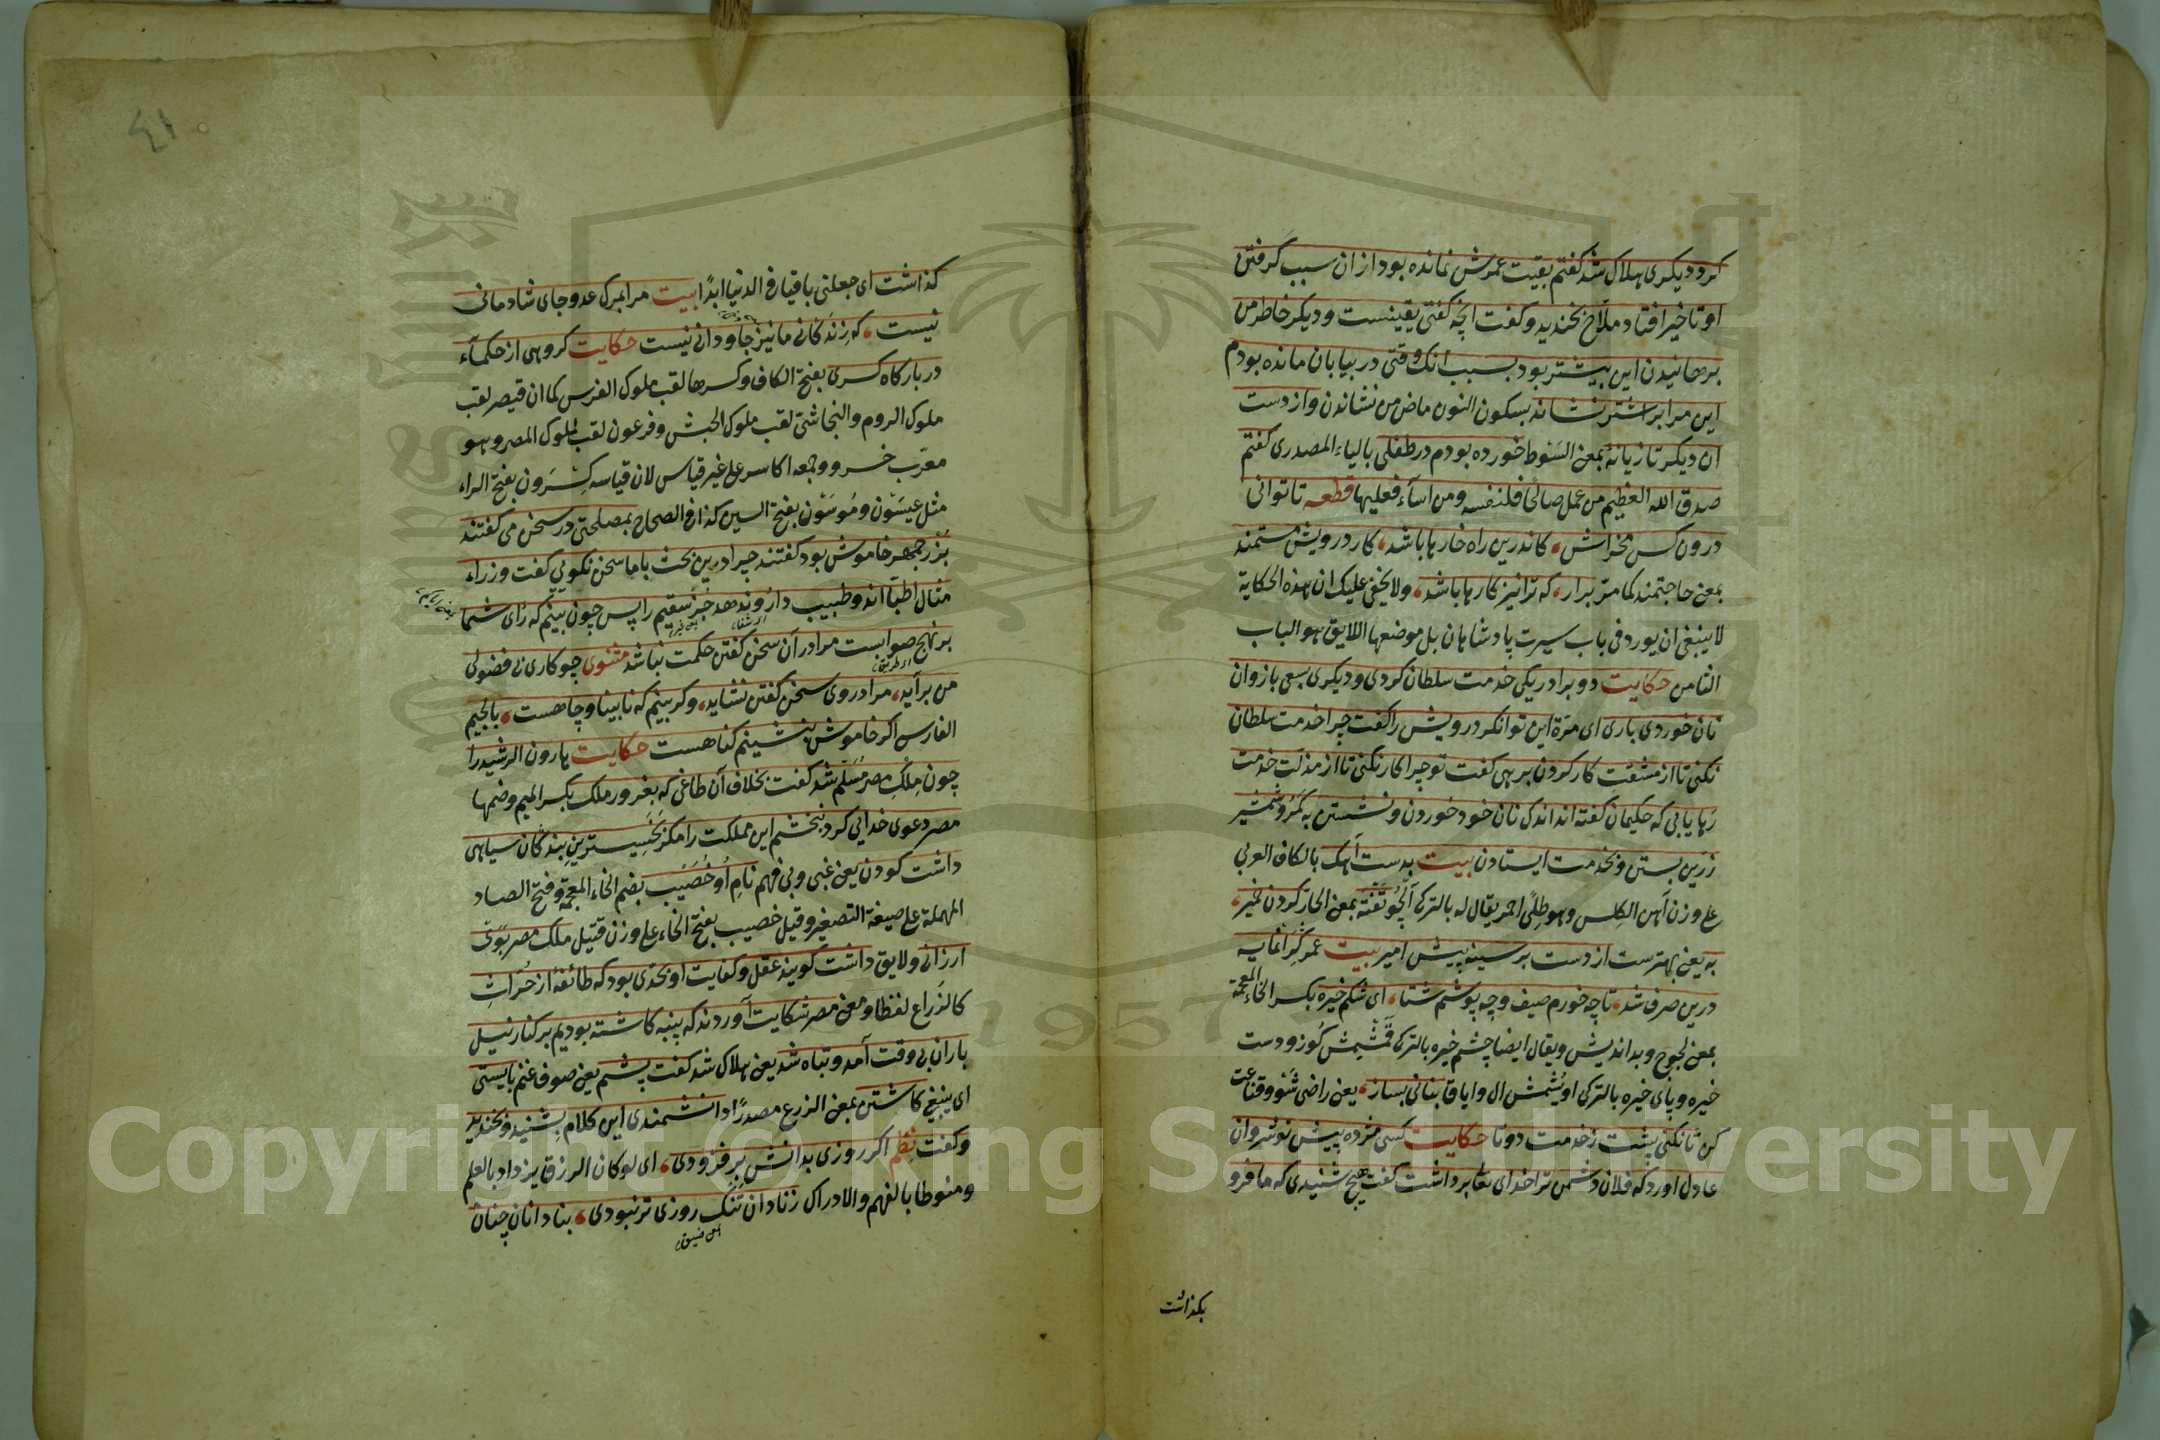 کرد دیکری هلاک شد کفتم بقیت عمرش نمانده بود از ان سبب کرفتن
او تاخیر افتاد ملاح بخندید و کفت انچه کفتی یقینست و دیکر خاطر من
برهانیدن این بیشتر بود بسبب انک وقتی در بیابان مانده بودم
این مرا بر شتر نشاند بسکون النون ماض من نشاندن و از دست
ان دیکر تازیانه بمعنی السوط خورده بودم در طفلی بالیاء المصدری کفتم
صدق الله العظیم من عمل صالحا فلنفسه ومن اسآء فعلیها قطعه تا توانی
درون کس مخراش کاندرین راه خارها باشد کار درویش مستمند
بمعنی حاجتمند کما مر برار که ترا نیز کارها باشد ولا یخفی علیک ان هذه الحکایة
لا ینبغی ان یورد فی باب سیرت پادشاهان بل موضعها اللایق هو الباب
الثامن حکایت دو برادر یکی خدمت سلطان کردی و دیکری بسعی بازوان
نان خوردی باری ای مرة این توانکر درویش را کفت چرا خدمت سلطان
نکنی تا از مشقت کار کردن برهی کفت تو چرا کار نکنی تا از مذلت خدمت
رهایی یابی که حکیمان کفته اند اندک نان خود خوردن و نشستن به کمر و شمشیر
زرین بستن و بخدمت ایستادن بیت بدست آهک بالکاف العربی
علی وزن آهن الکلس وهو طلی احمر یقال له بالترکی آلچو تفته بمعنی الحار کردن خمیر
به یعنی بهترست از دست بر سینه پیش امیر بیت عمر کرانمایه
درین صرف شد تا چه خورم صیف و چه پوشم شتا ای شکم خیره بکسر الخاء المعجمة
بمعنی لجوج و بداندیش ویقال ایضا چشم خیره بالترکی قمشمش کوز و دست
خیره و پای خیره بالترکی اویشمش ال وایاق بنانی بساز یعنی راضی شو و قناعت
کن تا نکنی پشت ز خدمت دوتا حکایت کسی مژده پیش نوشروان
عادل اورد که فلان دشمن ترا خدای تعا برداشت کفت هیچ شنیدی که مافرو
بکذاشت
٤١
کذاشت ای جعلنی باقیا فی الدنیا ابدًا بیت مرا بمرک عدو جای شادمانی
نیست که زندکانی ما نیز جاودانی نیست حکایت کروهی از حکمآء
در بارکاه کسری بفتح الکاف وکسرها لقب ملوک الفرس کما ان قیصر لقب
ملوک الروم والنجاشی لقب ملوک الحبش وفرعون لقب لملوک المصر وهو
معرب خسرو وجمعه اکاسر علی غیر قیاس لان قیاسه کسرون بفتح الراء
مثل عیسون وموسون بفتح السین کذا فی الصحاح بمصلحتی در سخن می کفتند
بزرجمهر خاموش بود کفتند چرا درین بحث با ما سخن نکویی کفت وزراء
مثال اطبا اند و طبیب دارو ندهد جز سقیم را پس چون بینم که رای شما
بر نهج صوابست مرا در آن سخن کفتن حکمت نباشد مثنوی چو کاری بی فضولی
من برآید مرا در وی سخن کفتن نشاید وکر بینم که نابینا و چاهست بالجیم
الفارسی اکر خاموش بنشینم کناهست حکایت هارون الرشید را
چون ملک مصر مسلم شد کفت بخلاف آن طاغی که بغرور ملک بکسر المیم وضمها
مصر دعوی خدایی کرد نبخشم این مملکت را مکر بخسیسترین بندکان سیاهی
داشت کودن یعنی غبی و بی فهم نام او خصیب بضم الخاء المعجمة وفتح الصاد
المهملة علی صیغة التصغیر وقیل خصیب بفتح الخاء علی وزن قتیل ملک مصر بوی
ارزانی ولایق داشت کویند عقل و کفایت او بحدی بود که طائفه از حراث
کالزراع لفظا ومعنی مصر شکایت آوردند که پنبه کاشته بودیم بر کنار نیل
باران بی وقت آمد و تباه شد یعنی هلاک شد کفت پشم یعنی صوف غنم بایستی
ای ینبغی کاشتن بمعنی الزرع مصدرًا دانشمندی این کلام بشنید و بخندید
وکفت نظم اکر روزی بدانش بر فزودی ای لو کان الرزق یزداد بالعلم
ومنوطا بالفهم والادراک ز نادان تنک روزی تر نبودی بنادانان چنان